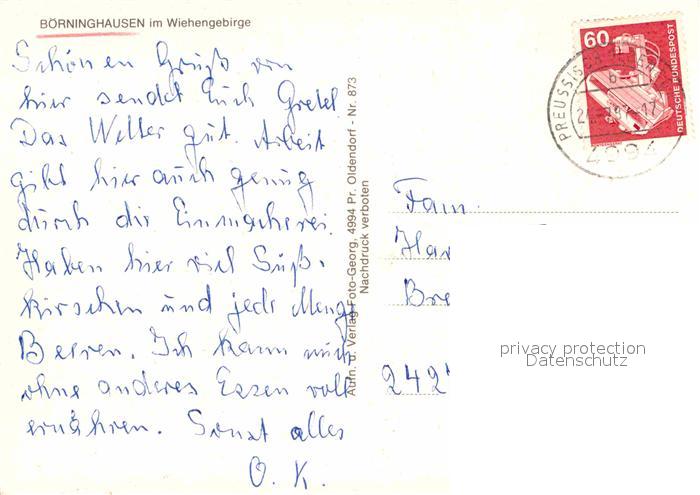 BÖRNINGHAUSEN im Wiehengebirge
Schönen Gruß von
hier sendet Euch Gretel.
Das Wetter gut. Arbeit
gibt hier auch genug
durch die Einmacherei.
Haben hier viel Süß-
kirschen und jede Menge
Beeren. Ich kann mich
ohne anderes Essen voll
ernähren. Sonst alles
O. K.
Aufn. u. Verlag Foto-Georg, 4994 Pr. Oldendorf - Nr. 873
Nachdruck verboten
60
DEUTSCHE BUNDESPOST
PREUSSISCH
4994
Fam.
Har
Bre
242
privacy protection
Datenschutz